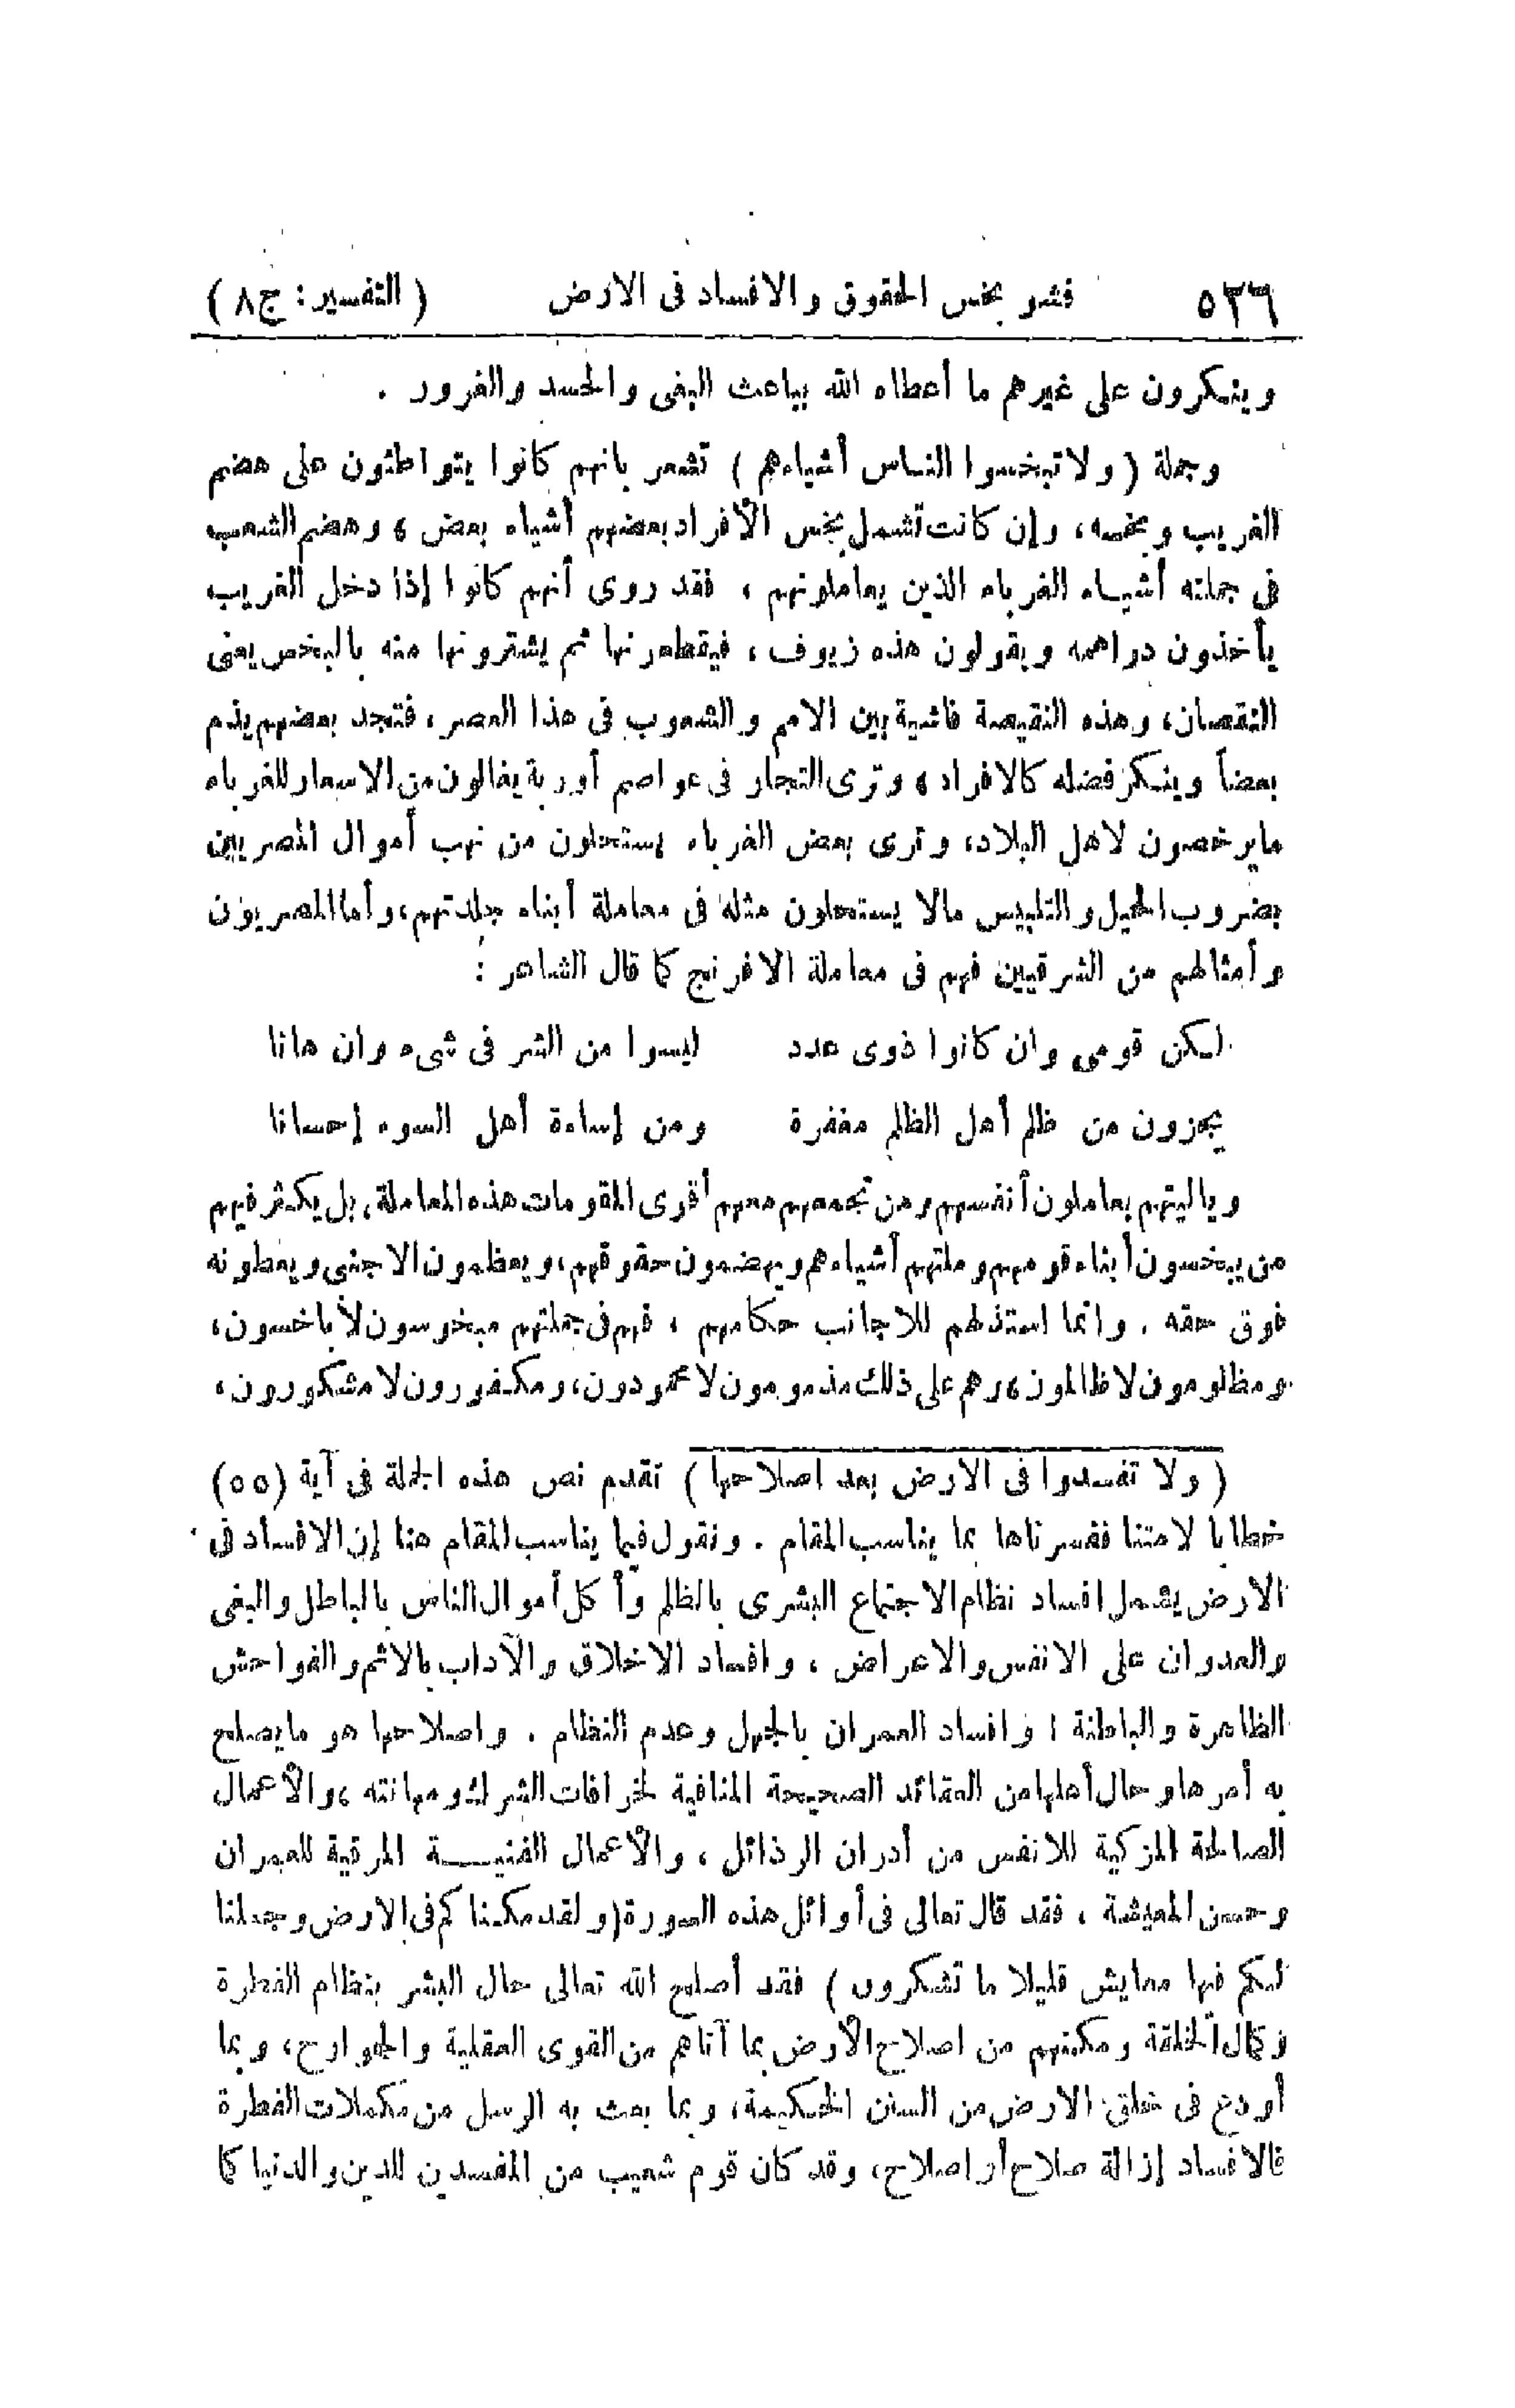 ٥٣٦ فشو بخس الحقوق والافساد فى الارض ( التفسير : ج ٨ )
وينكرون على غيرهم ما أعطاه الله بباعث البغى والحسد والغرور .
وجملة ( ولا تبخسوا الناس أشياءهم ) تشعر بانهم كانوا يتواطئون على هضم
الغريب وبخسه ، وإن كانت تشمل بخس الأفراد بعضهم أشياء بعض ، وهضم الشعب
فى جملته أشياء الغرباء الذين يعاملونهم ، فقد روى أنهم كانوا إذا دخل الغريب
يأخذون دراهمه ويقولون هذه زيوف ، فيقطعونها ثم يشترونها منه بالبخس يعنى
النقصان ، وهذه النقيصة فاشية بين الامم والشعوب فى هذا العصر ، فتجد بعضهم يذم
بعضاً وينكر فضله كالافراد ، وترى التجار فى عواصم أوربة يغالون من الاسعار للغرباء
ما يرخصون لاهل البلاد ، وترى بعض الغرباء يستحلون من نهب أموال المصريين
بضروب الحيل والتلبيس مالا يستحلون مثله فى معاملة أبناء جلدتهم ، وأما المصريون
وأمثالهم من الشرقيين فهم فى معاملة الافرنج كما قال الشاعر :
لكن قومى وان كانوا ذوى عدد ليسوا من الشر فى شىء وان هانا
يجزون من ظلم أهل الظلم مغفرة ومن إساءة أهل السوء إحسانا
وياليتهم يعاملون أنفسهم ومن تجمعهم معهم أقوى المقومات هذه المعاملة ، بل يكثر فيهم
من يبخسون أبناء قومهم وملتهم أشياءهم ويهضمون حقوقهم ، ويعظمون الاجنبى ويعطونه
فوق حقه . وانما استذلهم للاجانب حكامهم ، فهم فى جملتهم مبخوسون لا باخسون ،
ومظلومون لا ظالمون ، وهم على ذلك مذمومون لا محمودون ، ومكفورون لا مشكورون ،
( ولا تفسدوا فى الارض بعد اصلاحها ) تقدم نص هذه الجملة فى آية (٥٥)
خطابا لامتنا ففسرناها بما يناسب المقام . ونقول فيما يناسب المقام هنا إن الافساد فى
الارض يشمل افساد نظام الاجتماع البشرى بالظلم وأكل أموال الناس بالباطل والبغى
والعدوان على الانفس والاعراض ، وافساد الاخلاق والآداب بالاثم والفواحش
الظاهرة والباطنة ، وافساد العمران بالجهل وعدم النظام . واصلاحها هو ما يصلح
به أمرها وحال أهلها من العقائد الصحيحة المنافية لخرافات الشرك ومهانته ، والأعمال
الصالحة المزكية للانفس من أدران الرذائل ، والأعمال الفنيـــة المرقية للعمران
وحسن المعيشة ، فقد قال تعالى فى أوائل هذه السورة ( ولقد مكناكم فى الارض وجعلنا
لكم فيها معايش قليلا ما تشكرون ) فقد أصلح الله تعالى حال البشر بنظام الفطرة
وكمال الخلقة ومكنهم من اصلاح الأرض بما آتاهم من القوى العقلية والجوارح ، وبما
أودع فى خلق الارض من السنن الحكيمة ، وبما بعث به الرسل من مكملات الفطرة
فالافساد إزالة صلاح أو اصلاح ، وقد كان قوم شعيب من المفسدين للدين والدنيا كما